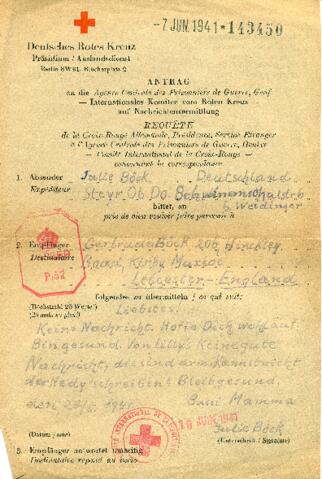 -7 JUN 1941 * 143450
Deutsches Rotes Kreuz
Präsidium / Auslandsdienst
Berlin SW 61, Blücherplatz 2
ANTRAG
an die Agence Centrale des Prisonniers de Guerre, Genf
— Internationales Komitee vom Roten Kreuz
auf Nachrichtenvermittlung
REQUÊTE
de la Croix-Rouge Allemande, Présidence, Service Etranger
à l'Agence Centrale des Prisonniers de Guerre, Genève
— Comité International de la Croix-Rouge —
concernant la correspondance
1. Absender Julie Böck, Deutschland
Expéditeur Steyr Ob. Do.
b. Weidinger
bittet, an
prie de bien vouloir faire parvenir à
2. Empfänger Gertrude Böck 206 Hinckley
Destinataire Road, Kirby Muxloe
Leicester - England
P.52
folgendes zu übermitteln / ce qui suit:
(Höchstzahl 25 Worte!)
(25 mots au plus!)
Liebstes!
Keine Nachricht. Hoffe Dich wohlauf
Bin gesund. Von Lilly Keine gute
Nachricht, die sind arm. Kannst nicht
der Hedy schreiben? Bleib gesund.
den 1941 Bussi Mamma
Julie Böck
(Datum / date) (Unterschrift / Signature)
3. Empfänger antwortet umseitig
Destinataire répond au verso